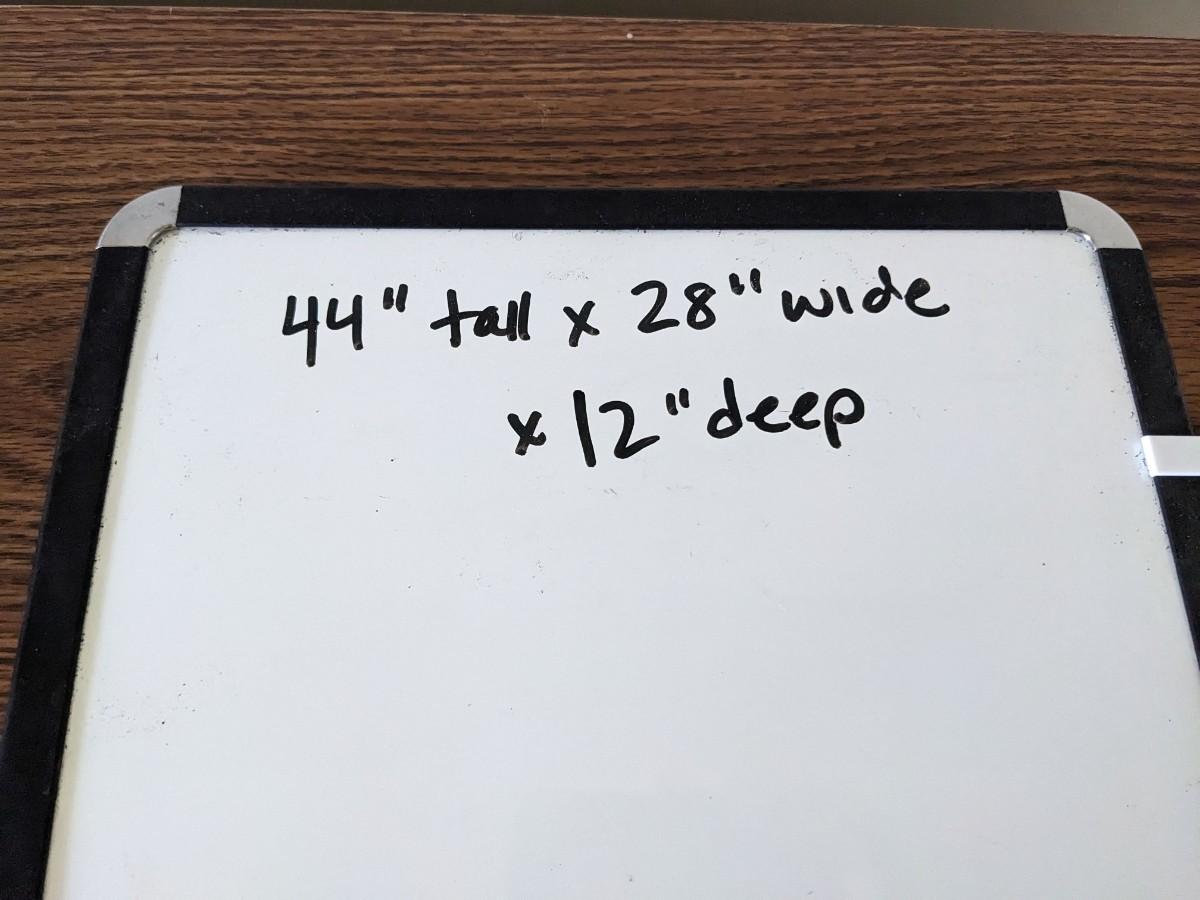 44" tall x 28" wide
x 12" deep